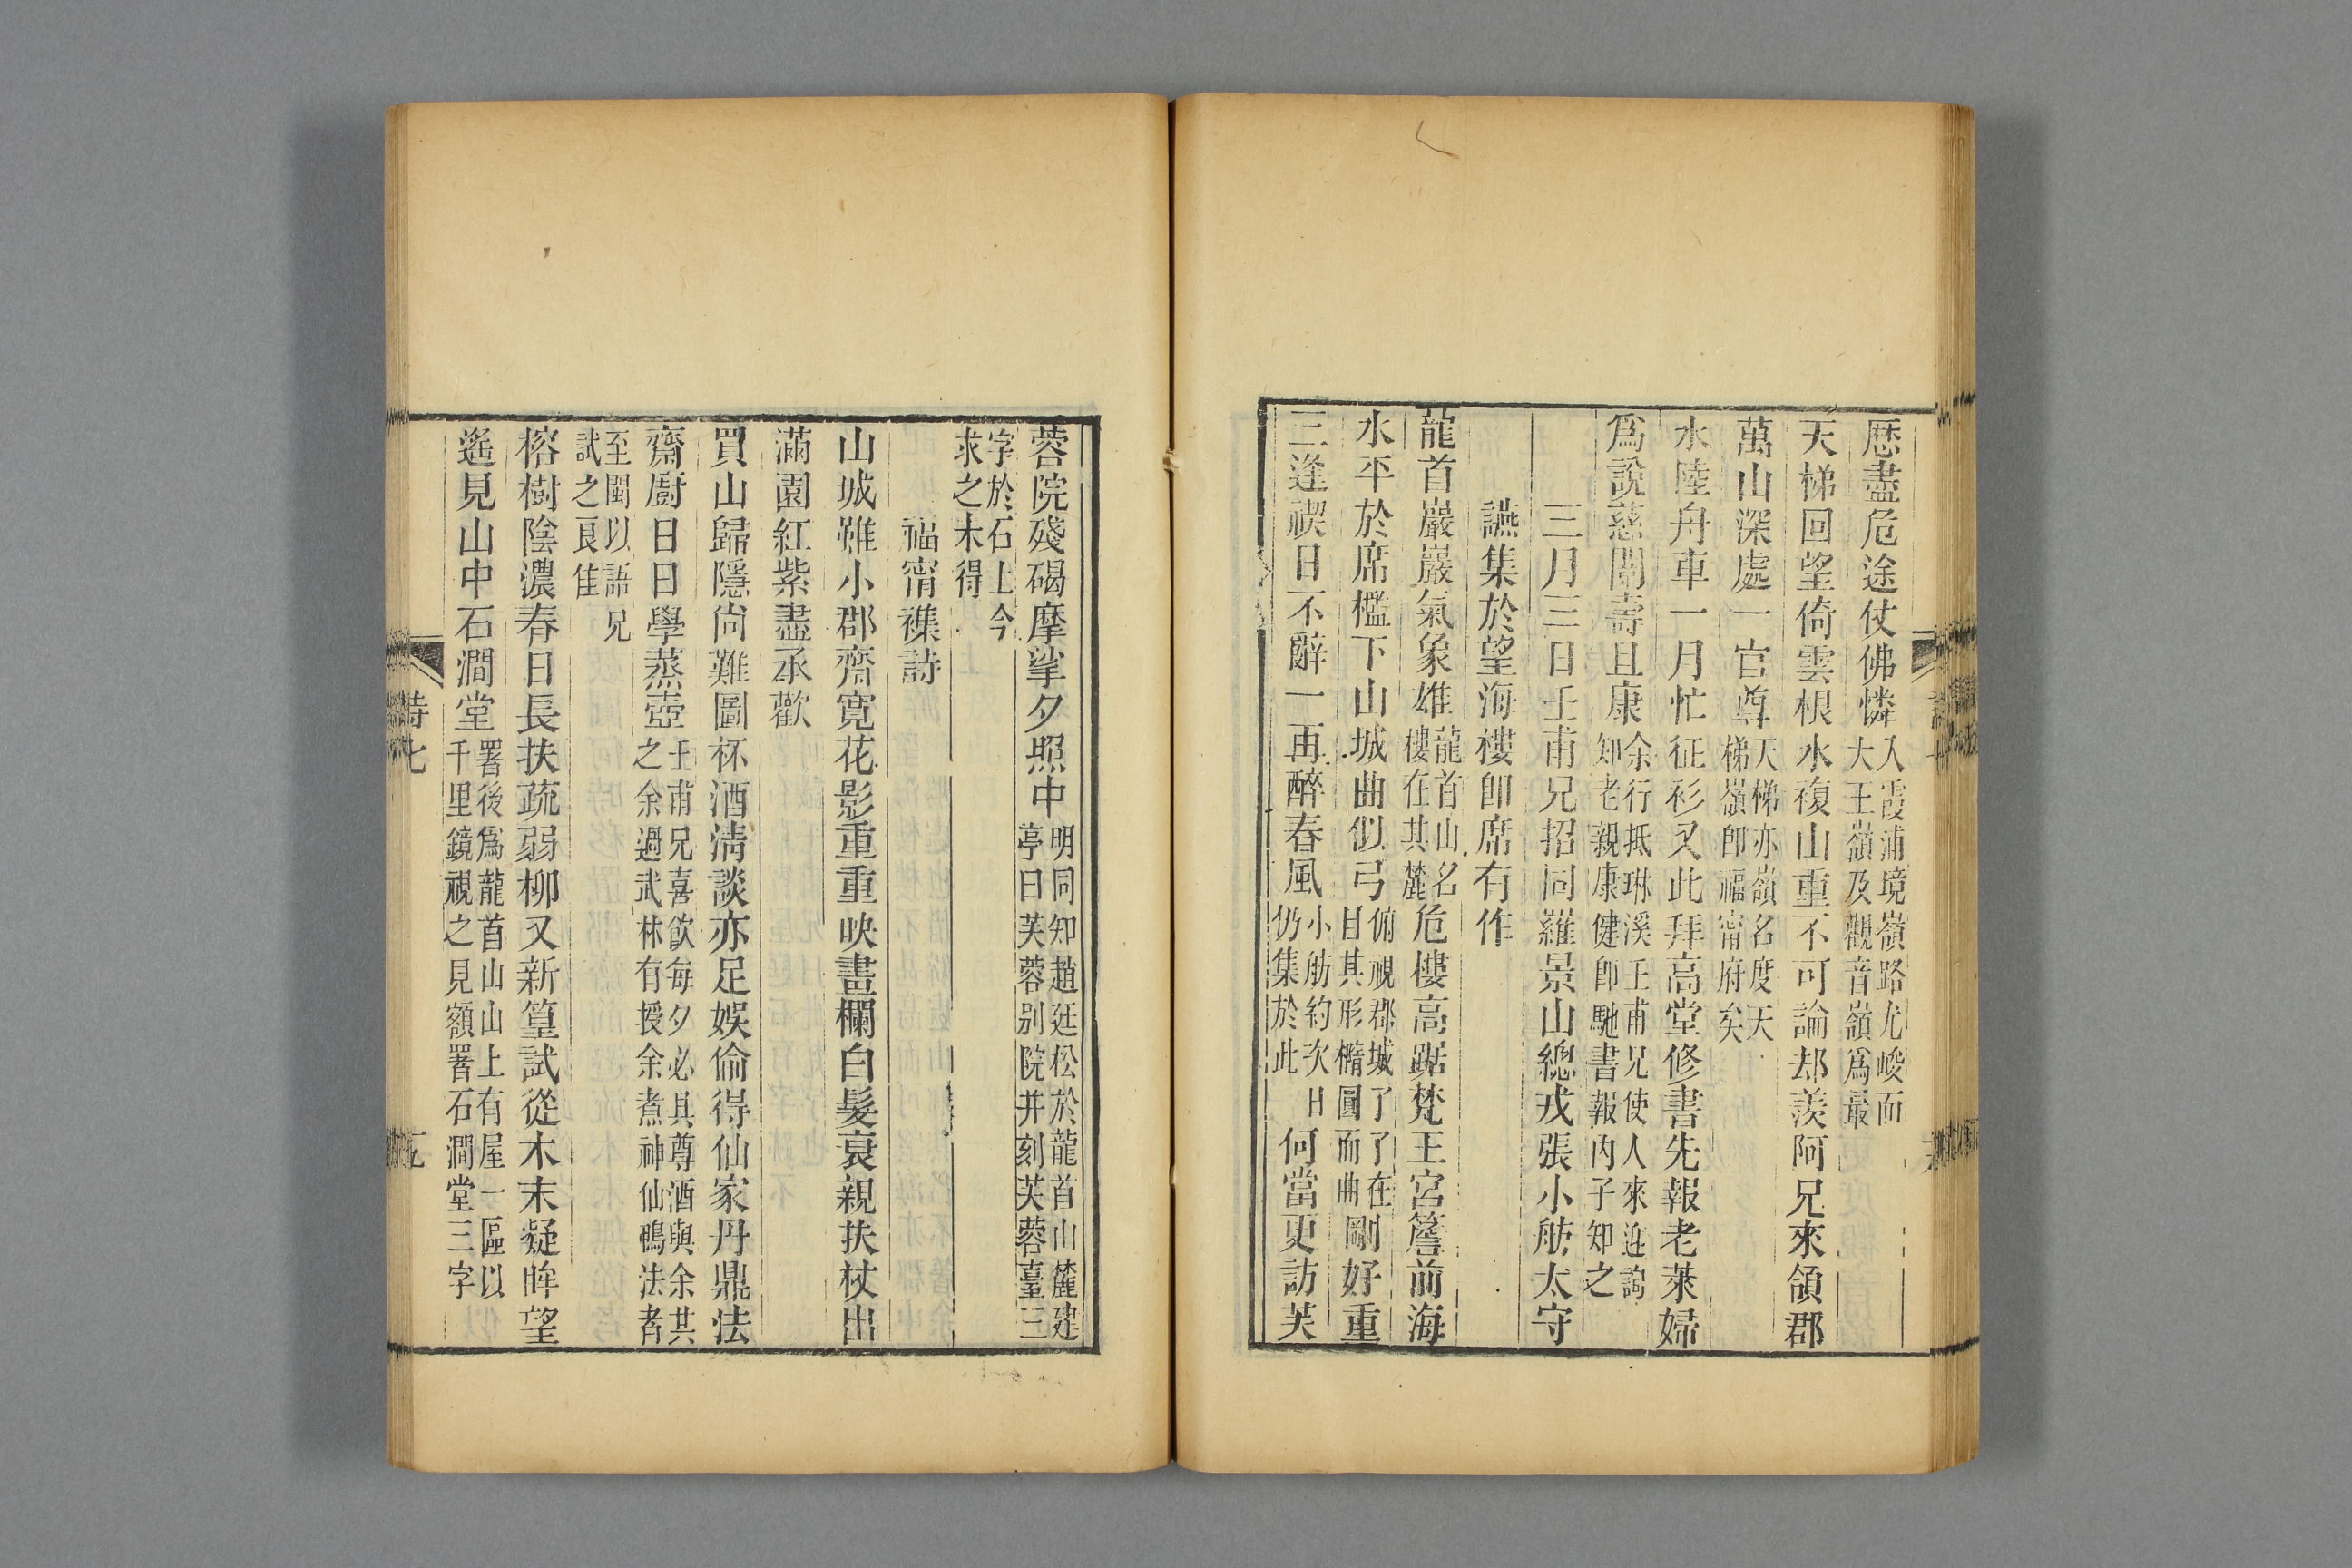 歷盡危途仗佛憐入霞浦境嶺路尤峻而大王嶺及觀音嶺爲最
天梯回望倚雲根水複山重不可論却羨阿兄來領郡
萬山深處一官尊天梯亦嶺名度天梯嶺卽福甯府矣
水陸舟車一月忙征衫又此拜高堂修書先報老萊婦
爲說慈闈壽且康余行抵琳溪壬甫兄使人來迎詢知老親康健卽馳書報内子知之
三月三日壬甫兄招同羅景山總戎張小舫太守
讌集於望海樓卽席有作
龍首巖巖氣象雄龍首山名樓在其麓危樓高踞梵王宮簷前海
水平於席檻下山城曲似弓俯視郡城了了在目其形橢圓而曲剛好重
三逢禊日不辭一再醉春風小舫約次日仍集於此何當更訪芙
蓉院殘碣摩挲夕照中明同知趙廷松於龍首山麓建亭曰芙蓉别院并刻芙蓉臺三
字於石上今求之未得
福甯襍詩
山城雖小郡齋寬花影重重映畫欄白髮衰親扶杖出
滿園紅紫盡承歡
買山歸隱尙難圖杯酒淸談亦足娛偷得仙家丹鼎法
齋廚日日學蒸壺壬甫兄喜飲每夕必具尊酒與余共之余過武林有授余煮神仙鴨法者
至閩以語兄試之良佳
榕樹陰濃春日長扶疏弱柳又新篁試從木末凝眸望
遙見山中石澗堂署後爲龍首山山上有屋一區以千里鏡視之見額署石澗堂三字
詩七